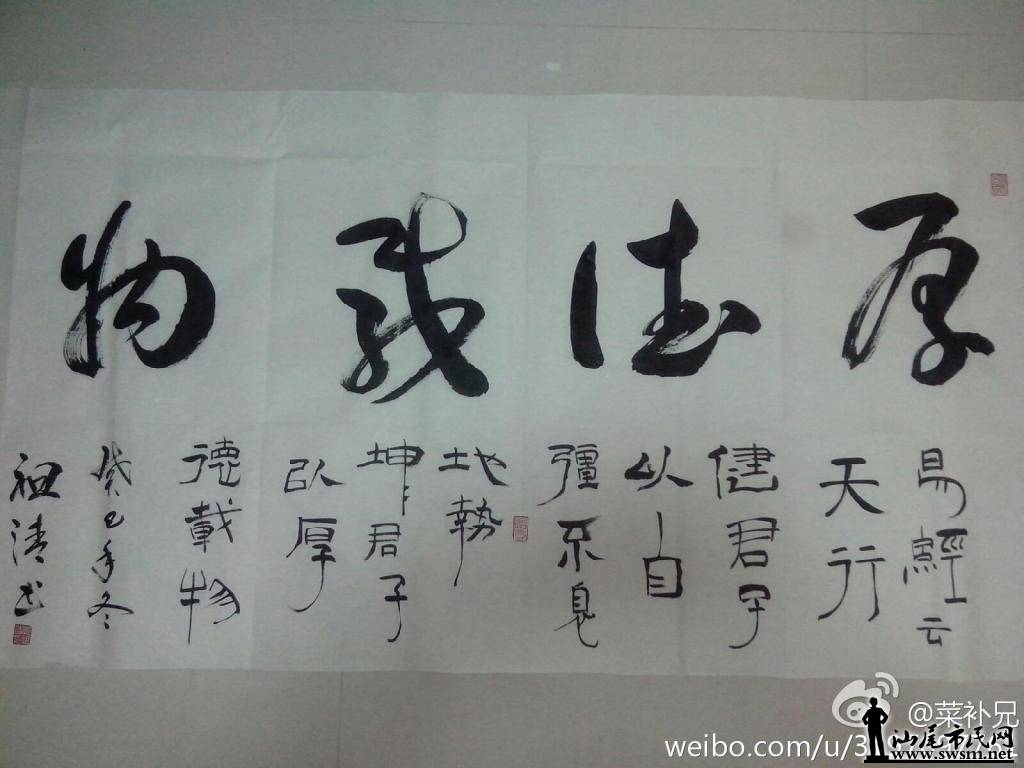 厚德载物
易經云
天行
健君子
以自
彊不息
地勢
坤君子
以厚
德載物
癸巳年冬
祖清书
@菜补兄
weibo.com/u/3
汕尾市民网
www.swsm.net